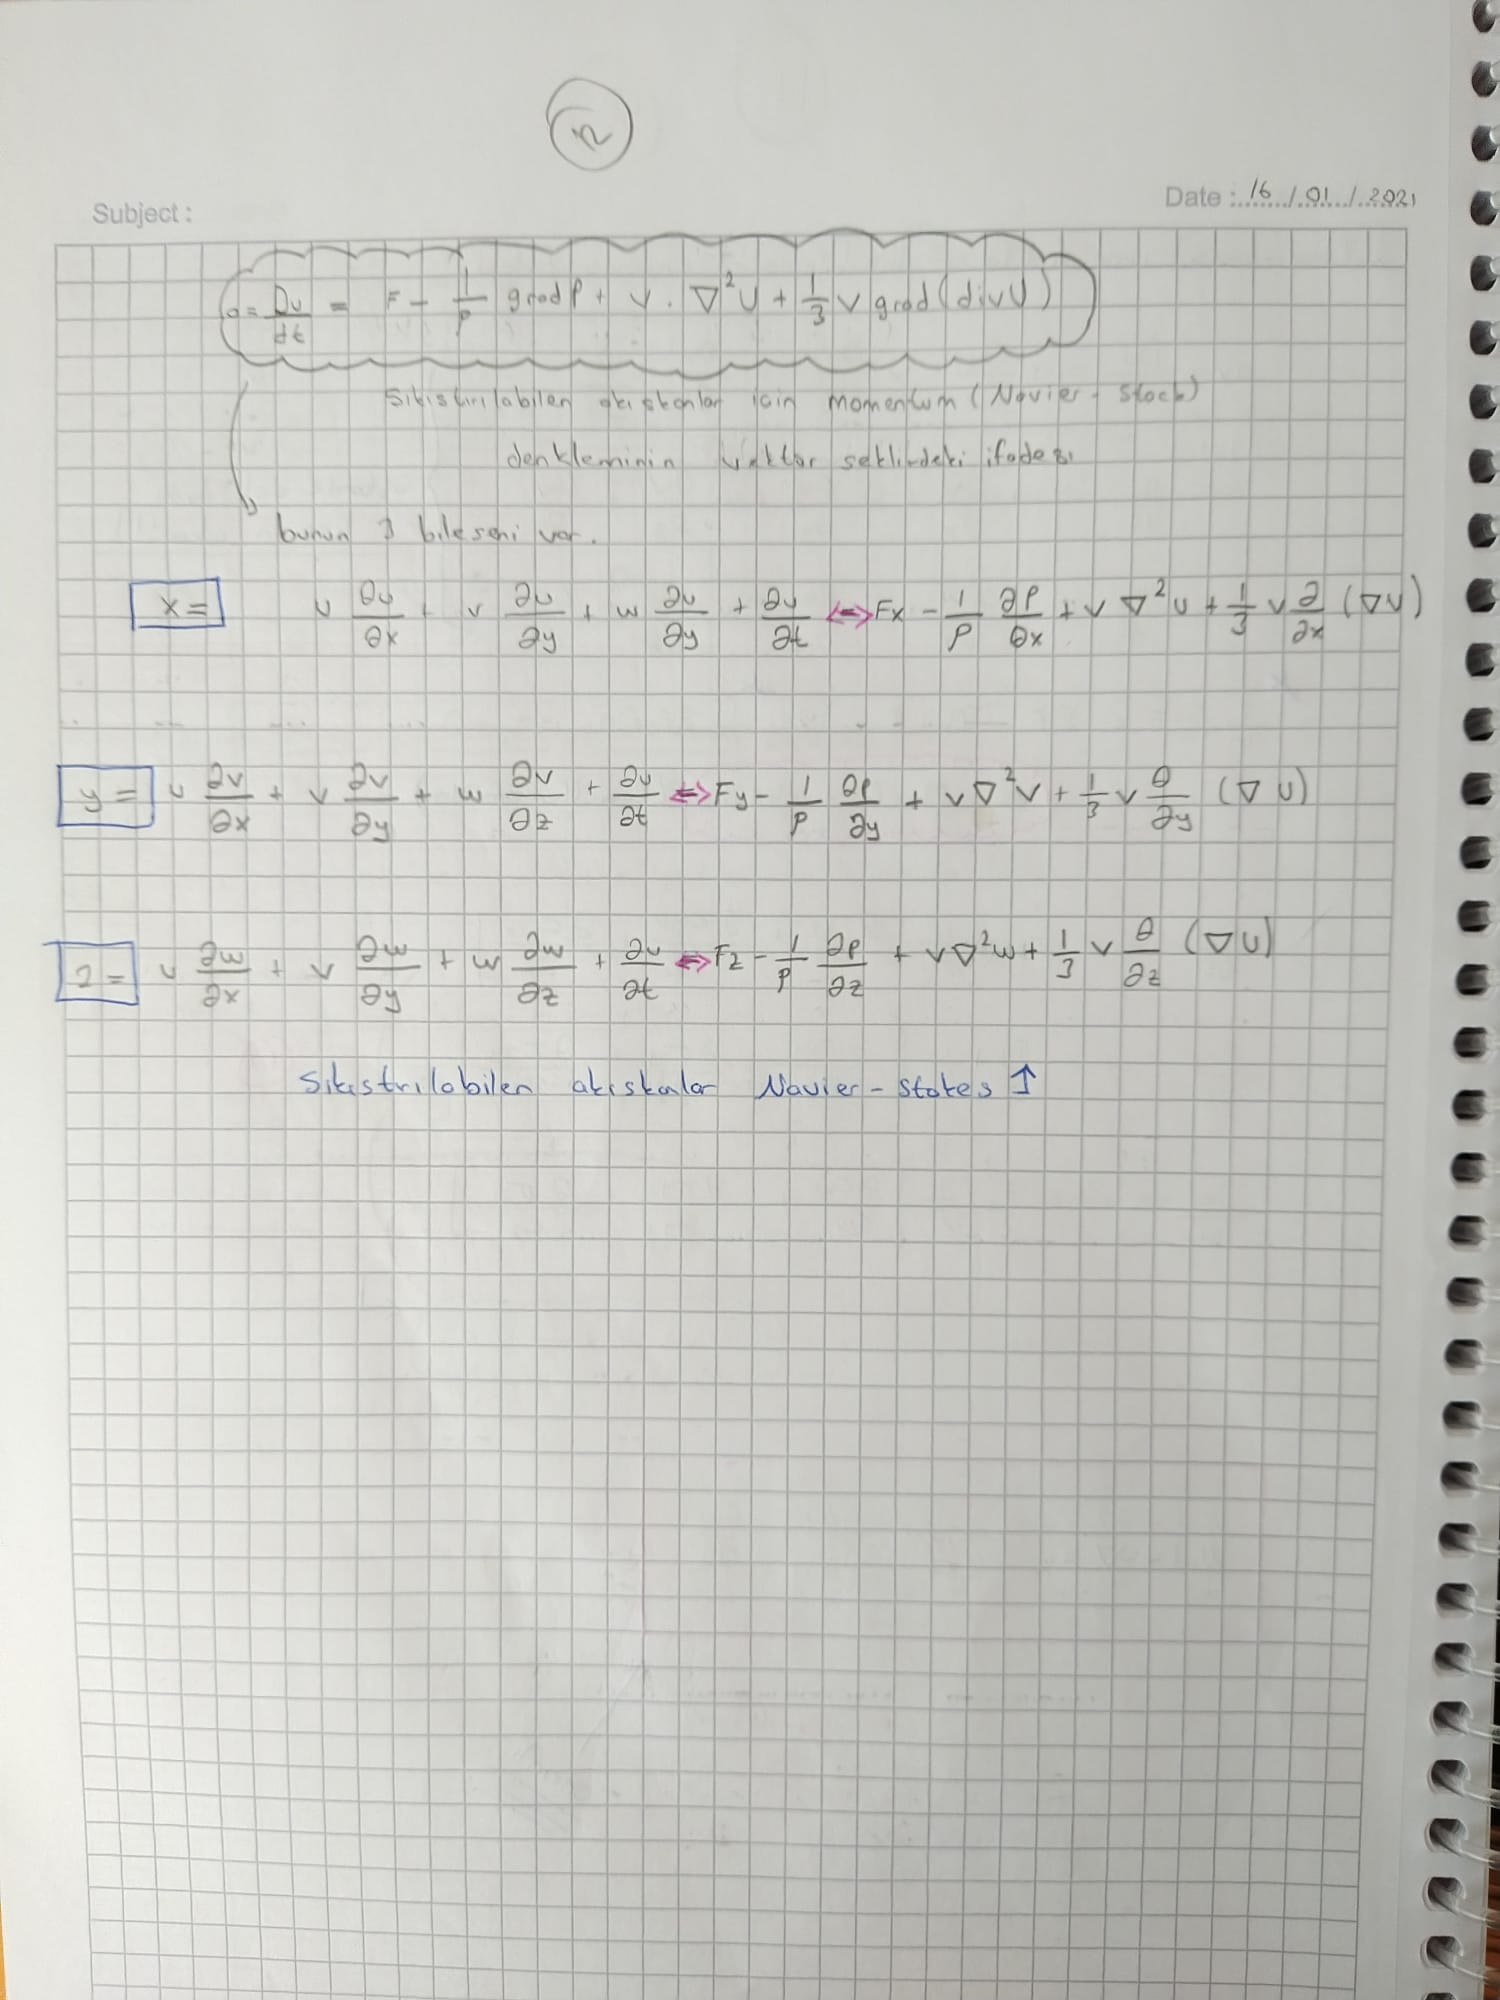 12
Subject : Date : 16 / 01 / 2021
a = Du/dt = F - 1/ρ grad P + ν . ∇²U + 1/3 ν grad (div U)
Sıkıstırılabilen akıskanlar icin momentum (Navier - Stock)
denkleminin vektör seklindeki ifadesi
bunun 3 bileseni var.
x = u ∂u/∂x + v ∂u/∂y + w ∂u/∂y + ∂u/∂t <=> Fx - 1/ρ ∂P/∂x + ν ∇²u + 1/3 ν ∂/∂x (∇U)
y = u ∂v/∂x + v ∂v/∂y + w ∂v/∂z + ∂u/∂t <=> Fy - 1/ρ ∂P/∂y + ν ∇²v + 1/3 ν ∂/∂y (∇ U)
z = u ∂w/∂x + v ∂w/∂y + w ∂w/∂z + ∂u/∂t <=> Fz - 1/ρ ∂P/∂z + ν ∇²w + 1/3 ν ∂/∂z (∇U)
Sıkıstrılabilen akıskanlar Navier - Stokes ↑